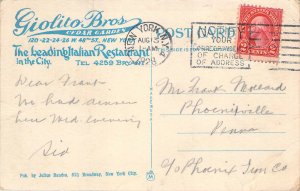 Giolito Bros.
CEDAR GARDEN
120-22-24-26 W 48th ST., NEW YORK
The Leading Italian Restaurant
in the City.
TEL 4259 BRYANT
POST
NEW YORK, N.Y.
AUG 15
AM
1929
YOUR
OF CHANGE
OF ADDRESS
2
Dear Frank
We had dinner
here Wed evening
Sid
Mr Frank
Phoenixville
Penna
℅ Phoenix Iron Co
Pub. by Julius Bandes, 621 Broadway, New York City.